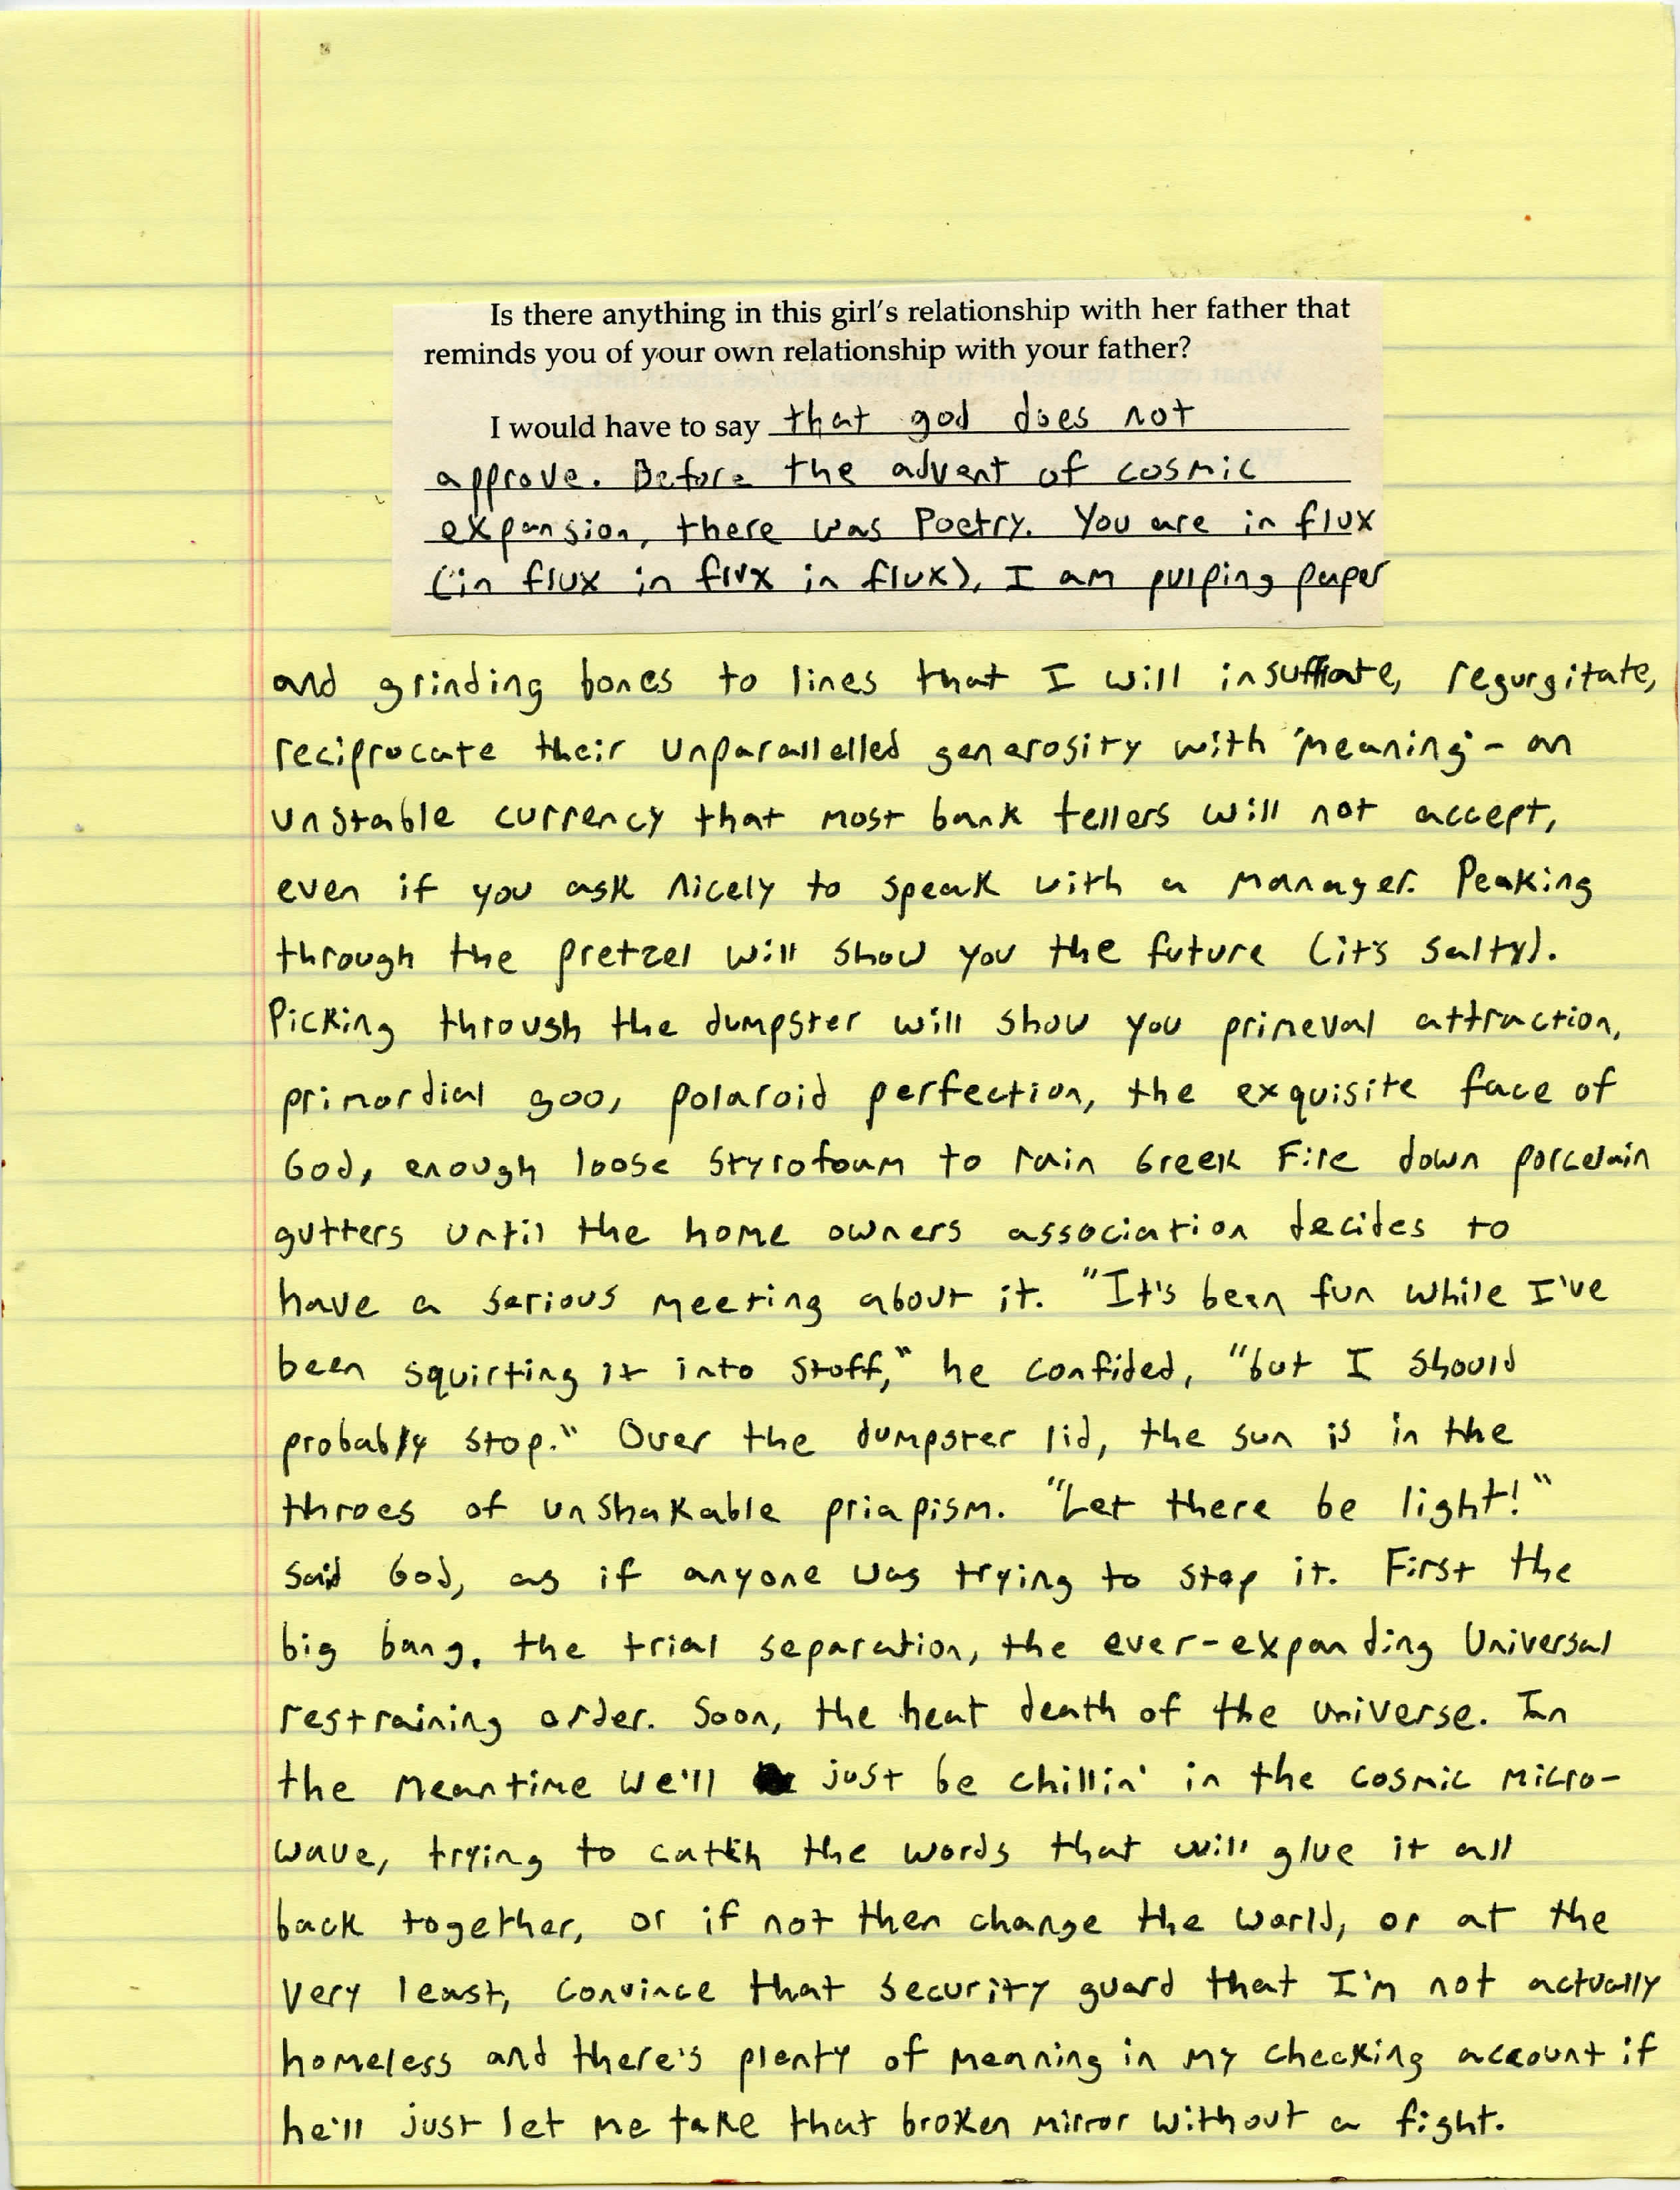 Is there anything in this girl's relationship with her father that
reminds you of your own relationship with your father?
I would have to say that god does not
approve. Before the advent of cosmic
expansion, there was Poetry. You are in flux
(in flux in flux in flux), I am pulping paper
and grinding bones to lines that I will insufflate, regurgitate,
reciprocate their unparallelled generosity with "meaning" - an
unstable currency that most bank tellers will not accept,
even if you ask nicely to speak with a manager. Peaking
through the pretzel will show you the future (it's salty).
Picking through the dumpster will show you primeval attraction,
primordial goo, polaroid perfection, the exquisite face of
God, enough loose styrofoam to rain Greek Fire down porcelain
gutters until the home owners association decides to
have a serious meeting about it. "It's been fun while I've
been squirting it into stuff," he confided, "but I should
probably stop." Over the dumpster lid, the sun is in the
throes of unshakable priapism. "Let there be light!"
said God, as if anyone was trying to stop it. First the
big bang, the trial separation, the ever-expanding Universal
restraining order. Soon, the heat death of the universe. In
the meantime we'll just be chillin' in the cosmic micro-
wave, trying to catch the words that will glue it all
back together, or if not then change the world, or at the
very least, convince that security guard that I'm not actually
homeless and there's plenty of meaning in my checking account if
he'll just let me take that broken mirror without a fight.